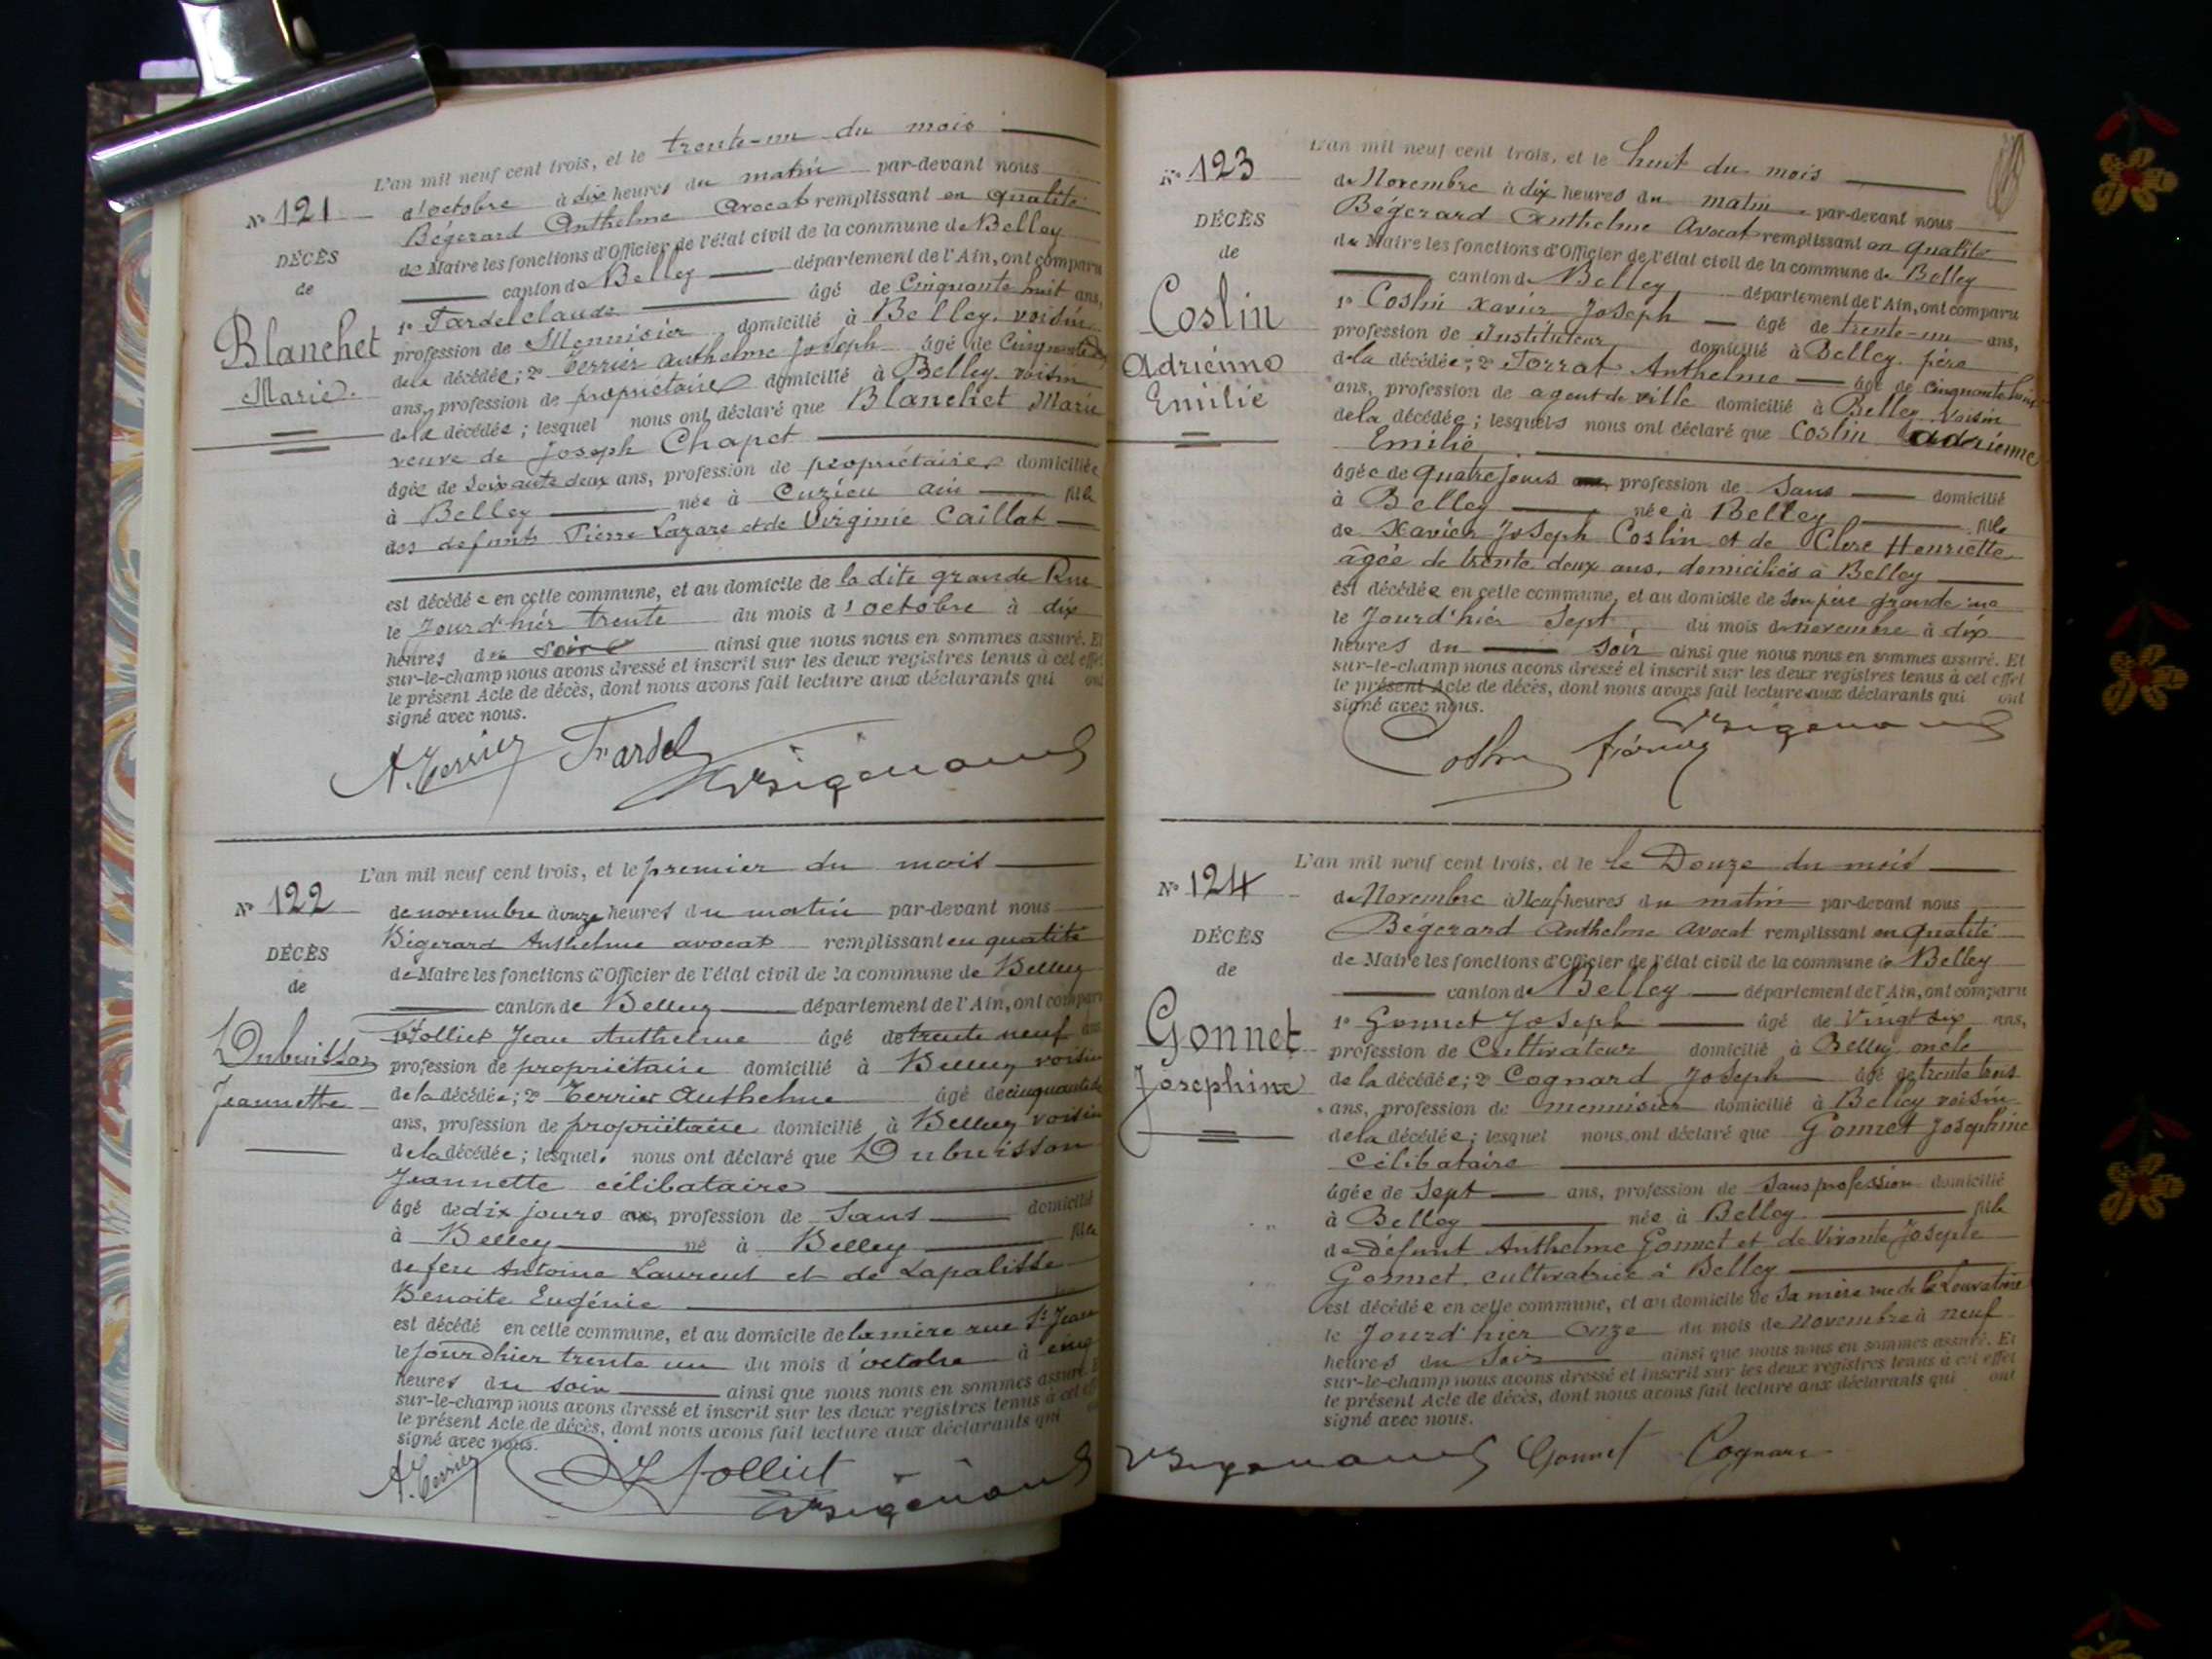 L'an mil neuf cent trois, et le trente-un du mois
N° 121
d'octobre à dix heures du matin par-devant nous
Bégerard Anthelme Avocat remplissant en qualité
DÉCÈS
de Maire les fonctions d'Officier de l'état civil de la commune de Belley
de
canton de Belley département de l'Ain, ont comparu
Blanchet
Marie.
1° Fardel claude âgé de Cinquante huit ans,
profession de Menuisier domicilié à Belley, voisin
de la décédée; 2° Terrier Anthelme Joseph âgé de Cinquante
ans, profession de propriétaire domicilié à Belley voisin
de la décédée; lesquel nous ont déclaré que Blanchet Marie
veuve de Joseph Chapet
âgée de soixante deux ans, profession de propriétaire domiciliée
à Belley née à Cuzieu ain fille
des defunts Pierre Lazare et de Virginie Caillat
est décédée en cette commune, et au domicile de la dite grande Rue
le Jourd'hier trente du mois d'octobre à dix
heures du soir ainsi que nous nous en sommes assuré. Et
sur-le-champ nous avons dressé et inscrit sur les deux registres tenus à cet effet
le présent Acte de décès, dont nous avons fait lecture aux déclarants qui ont
signé avec nous.
A. Terrier Fardel
L'an mil neuf cent trois, et le premier du mois
N° 122
de novembre à onze heures du matin par-devant nous
Bégerard Anthelme avocat remplissant en qualité
DÉCÈS
de Maire les fonctions d'Officier de l'état civil de la commune de Belley
de
canton de Belley département de l'Ain, ont comparu
Dubuisson
Jeannette
1° Folliet Jean Anthelme âgé de trente neuf ans
profession de propriétaire domicilié à Belley voisin
de la décédée; 2° Terrier Anthelme âgé de cinquante
ans, profession de propriétaire domicilié à Belley voisin
de la décédée; lesquels nous ont déclaré que Dubuisson
Jeannette célibataire
âgé de dix jours ans, profession de Sans domicilié
à Belley né à Belley fille
de feu Antoine Laurent et de Lapalisse
Benoite Eugénie
est décédé en cette commune, et au domicile de la mère rue St Jean
le Jourdhier trente un du mois d'octobre à cinq
heures du soir ainsi que nous nous en sommes assuré. Et
sur-le-champ nous avons dressé et inscrit sur les deux registres tenus à cet effet
le présent Acte de décès, dont nous avons fait lecture aux déclarants qui
signé avec nous.
A. Terrier Folliet
L'an mil neuf cent trois, et le huit du mois
N° 123
de Novembre à dix heures du matin par-devant nous
Bégerard Anthelme Avocat remplissant en qualité
DÉCÈS
de Maire les fonctions d'Officier de l'état civil de la commune de Belley
de
canton de Belley département de l'Ain, ont comparu
Coslin
Adrienne
Emilie
1° Coslin Xavier Joseph âgé de trente-un ans,
profession de Instituteur domicilié à Belley père
de la décédée; 2° Forrat Anthelme âgé de cinquante huit
ans, profession de agent de ville domicilié à Belley Voisin
de la décédée; lesquels nous ont déclaré que Coslin Adrienne
Emilie
âgée de quatre jours ans, profession de Sans domicilié
à Belley née à Belley fille
de Xavier Joseph Coslin et de Clerc Henriette
âgée de trente deux ans, domiciliés à Belley
est décédée en cette commune, et au domicile de son père grande rue
le Jourd'hier Sept du mois de novembre à dix
heures du soir ainsi que nous nous en sommes assuré. Et
sur-le-champ nous avons dressé et inscrit sur les deux registres tenus à cet effet
le présent Acte de décès, dont nous avons fait lecture aux déclarants qui ont
signé avec nous.
Coslin
L'an mil neuf cent trois, et le le Douze du mois
N° 124
de Novembre à Neuf heures du matin par-devant nous
Bégerard Anthelme Avocat remplissant en qualité
DÉCÈS
de Maire les fonctions d'Officier de l'état civil de la commune de Belley
de
canton de Belley département de l'Ain, ont comparu
Gonnet
Josephine
1° Gonnet Joseph âgé de Vingt six ans,
profession de Cultivateur domicilié à Belley oncle
de la décédée; 2° Cognard Joseph âgé de trente trois
ans, profession de menuisier domicilié à Belley voisin
de la décédée; lesquel nous ont déclaré que Gonnet Josephine
Célibataire
âgée de Sept ans, profession de Sans profession domicilié
à Belley née à Belley fille
de Défunt Anthelme Gonnet et de Vivante Josephe
Gonnet cultivatrice à Belley
est décédée en cette commune, et au domicile de Sa mère rue de la Louvatière
le Jourd'hier Onze du mois de Novembre à neuf
heures du Soir ainsi que nous nous en sommes assuré. Et
sur-le-champ nous avons dressé et inscrit sur les deux registres tenus à cet effet
le présent Acte de décès, dont nous avons fait lecture aux déclarants qui ont
signé avec nous.
Gonnet Cognard